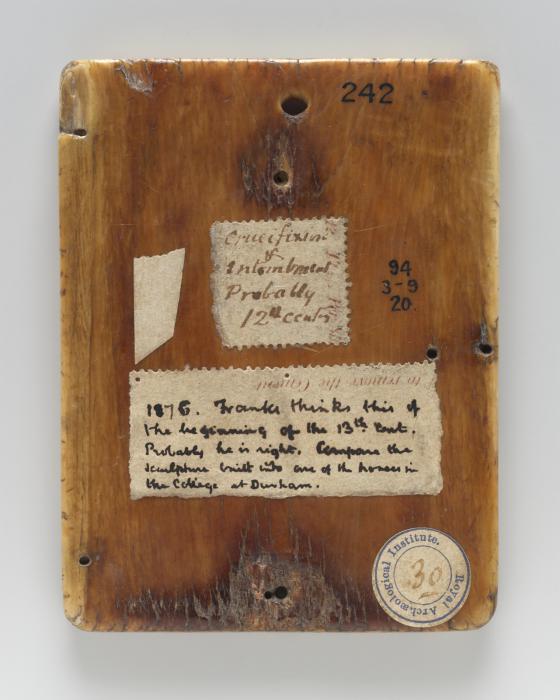 242
Crucifixion
&
Entombment
Probably
12th Centy
94
3-9
20.
to remove the Cement
1876. Franks thinks this of
the beginning of the 13th Cent.
Probably he is right. Compare the
sculpture built into one of the houses in
the College at Durham.
Royal Archæological Institute.
30